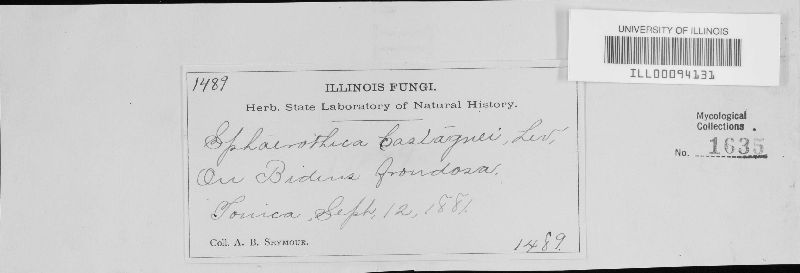 UNIVERSITY OF ILLINOIS
ILL00094131
Mycological
Collections .
No. 1635
1489
ILLINOIS FUNGI.
Herb. State Laboratory of Natural History.
Sphaerothica Castagnei, Lev,
On Bidens frondosa,
Tonica, Sept, 12, 1881.
Coll. A. B. Seymour.
1489.